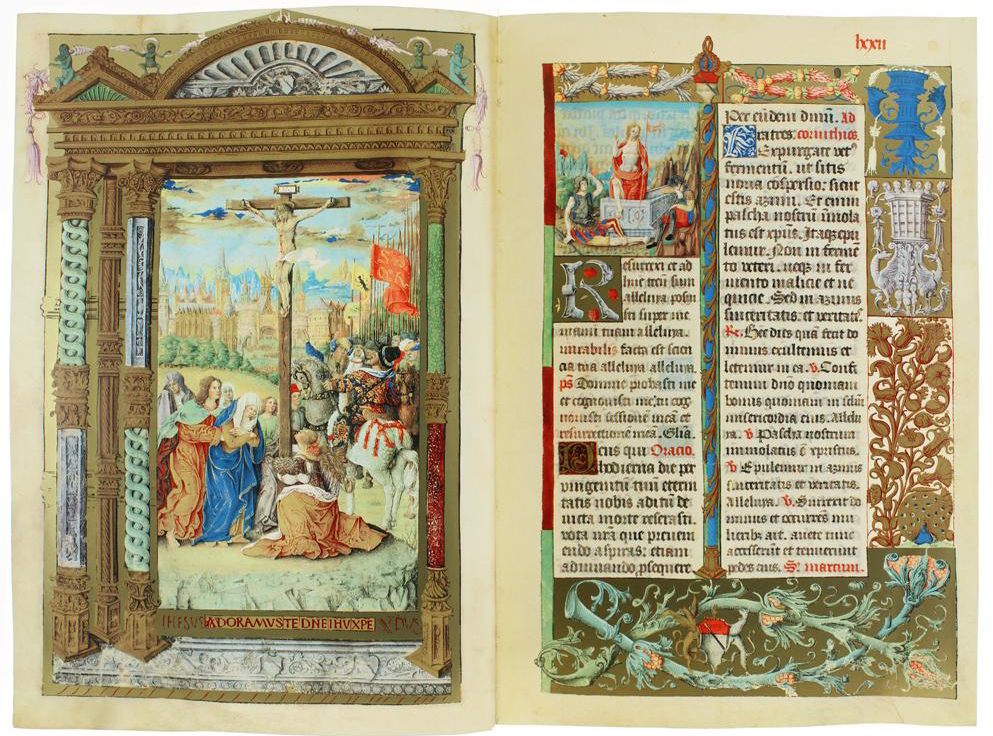 IHESUS ADORAMUSTEDNEIHUXPE XPUS
lxxii
Resurrexi et ad
huc tecū sum
alleluya. posui
sti super me
manū tuam alleluya.
mirabilis facta est scien
cia tua alleluya. alleluya.
ps Domine probasti me
et cognouisti me. tu cog
nouisti sessionē meā et
resurrectionē meā. Glīa.
Deus qui Oracio.
hodierna die per
vnigenitū tuū etern
tatis nobis aditū de
uicta morte reserasti.
vota nr̄a que preueni
endo aspiras: etiam
adiuuando psequere.
Per eūdem dnm̄. Ad
Fratres corinthios.
Expurgate vet
fermentū. ut sitis
noua cōspersio: sicut
estis azimi. Et enim
pascha nostrū īmola
tus est xp̄us. Itaqȝ epu
lemur. Non in fermē
to veteri. neqȝ in fer
mento malicie et ne
quicie. Sed in azimis
sinceritatis. et veritatis.
Rr. Hec dies quā fecit do
minus exultemus et
letemur in ea. v. Confi
temini dn̄o quoniam
bonus quoniam in sclm̄
misericordia eius. Allelu
ya. v Pascha nostrum
immolatus ē xpistus.
v Epulemur in azimis
sinceritatis et veritatis.
Alleluya. v. Surrexit do
minus et occurrēs mu
lieribȝ ait. auete tunc
accesserūt et tenuerunt
pedes eius. S. marcum.